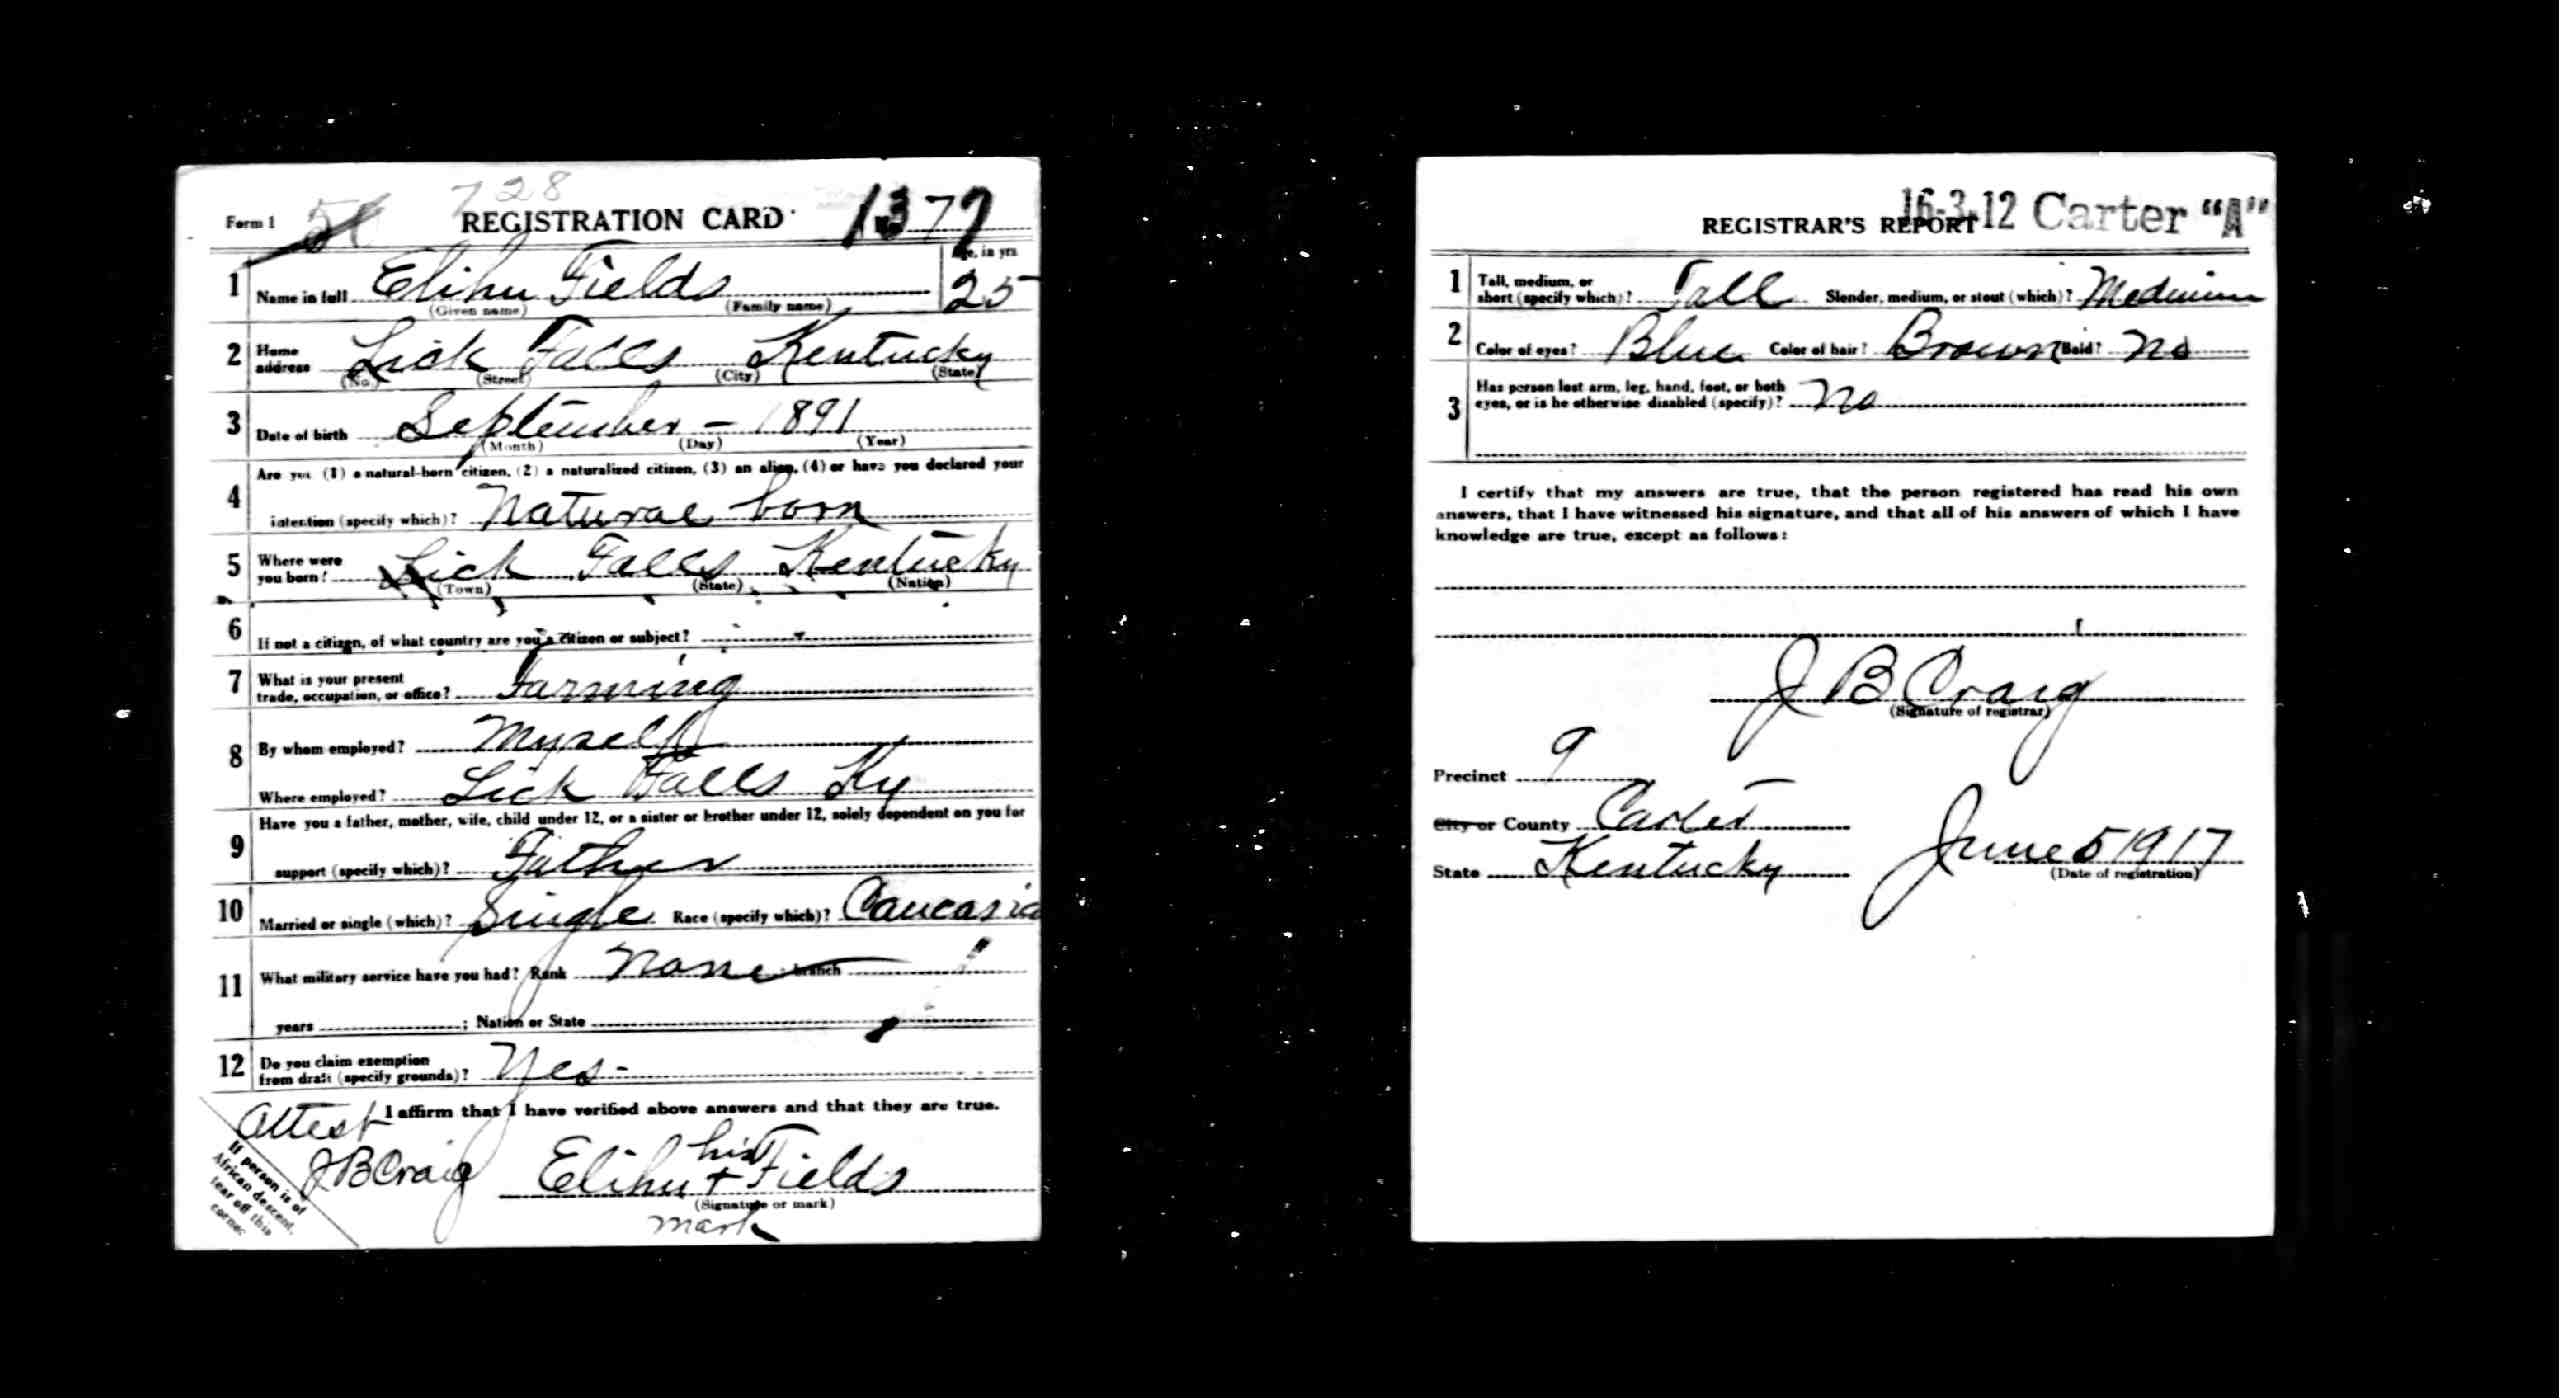 728
Form 1 REGISTRATION CARD No. 1377
Age, in yrs
1 Name in full Elihu Fields 25
(Given name) (Family name)
2 Home address Lick Falls Kentucky
(No.) (Street) (City) (State)
3 Date of birth September - 1891
(Month) (Day) (Year)
Are you (1) a natural-born citizen, (2) a naturalized citizen, (3) an alien, (4) or have you declared your
4 intention (specify which)? Natural born
5 Where were you born? Lick Falls Kentucky
(Town) (State) (Nation)
6 If not a citizen, of what country are you a citizen or subject?
7 What is your present
trade, occupation, or office? Farming
8 By whom employed? Myself
Where employed? Lick Falls Ky
Have you a father, mother, wife, child under 12, or a sister or brother under 12, solely dependent on you for
9 support (specify which)? Father
10 Married or single (which)? Single Race (specify which)? Caucasia
11 What military service have you had? Rank None branch
years ; Nation or State
12 Do you claim exemption
from draft (specify grounds)? Yes-
Attest I affirm that I have verified above answers and that they are true.
J B Craig Elihu his + Fields
(Signature or mark)
mark
If person is of
African descent,
tear off this
corner
16-3-12 Carter "A"
REGISTRAR'S REPORT
1 Tall, medium, or
short (specify which)? Tall Slender, medium, or stout (which)? Medium
2 Color of eyes? Blue Color of hair? Brown Bald? No
3 Has person lost arm, leg, hand, foot, or both
eyes, or is he otherwise disabled (specify)? No
I certify that my answers are true, that the person registered has read his own
answers, that I have witnessed his signature, and that all of his answers of which I have
knowledge are true, except as follows:
J B Craig
(Signature of registrar)
Precinct 9
City or County Carter
State Kentucky June 5 1917
(Date of registration)